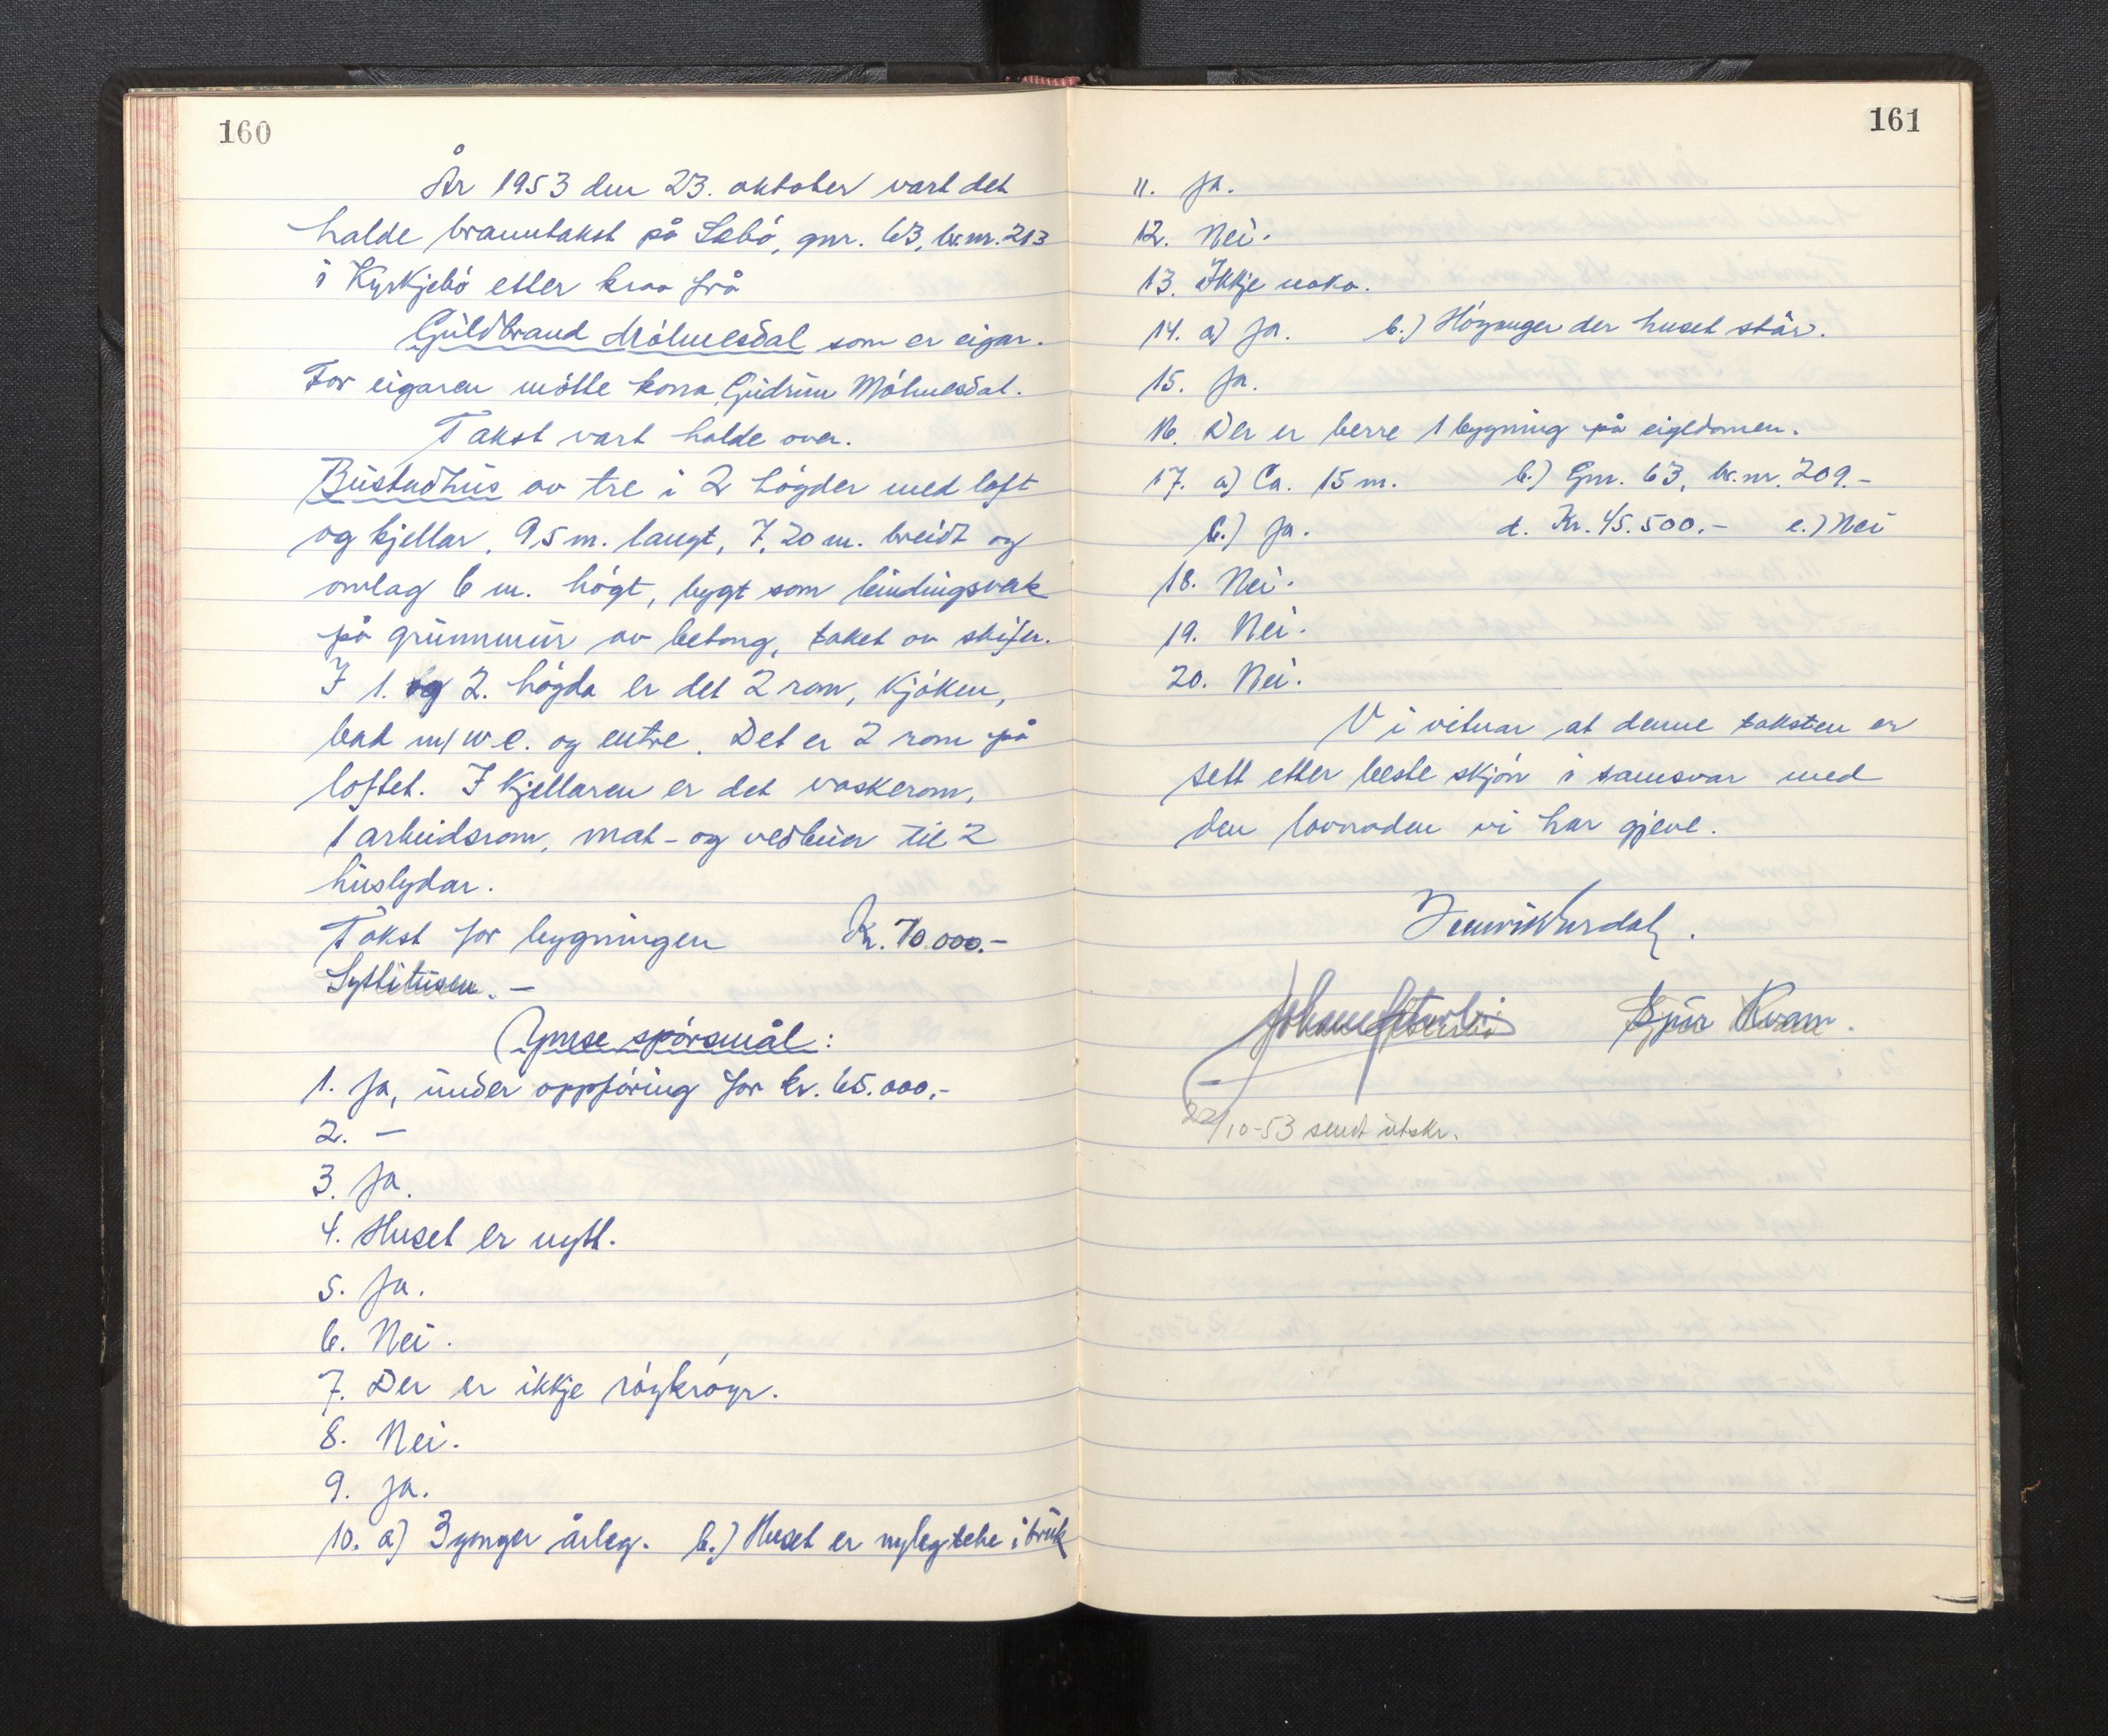 160
År 1953 den 23. oktober vart det
halde branntakst på Sæbö, gnr. 63, br.nr. 213
i Kyrkjebö etter krav frå
Guldbrand Mölmesdal som er eigar.
For eigaren mötte kona Gudrun Mölmesdal.
Takst vart halde over.
Bustadhus av tre i 2 högder med loft
og kjellar, 9,5 m. langt, 7,20 m. breidt og
omlag 6 m. högt, bygt som bindingsverk
på grunnmur av betong, taket av skifer.
I 1. og 2. högda er det 2 rom, kjöken,
bad m/ w.c. og entre. Det er 2 rom på
loftet. I kjellaren er det vaskerom,
1 arbeidsrom, mat- og vedbuer til 2
huslydar.
Takst for bygningen Kr. 70.000.-
Syttitusen. -
Ymse spörsmål:
1. Ja, under oppföring for kr. 65.000,-
2. -
3. Ja.
4. Huset er nytt.
5. Ja.
6. Nei.
7. Der er ikkje röykröyr.
8. Nei.
9. Ja.
10. a) 3 gonger årleg. b.) Huset er nyleg teke i bruk
161
11. Ja.
12. Nei.
13. Ikkje noko.
14. a) Ja. b.) Höyanger der huset står.
15. Ja.
16. Der er berre 1 bygning på eigedomen.
17. a) Ca. 15 m. b.) Gnr. 63, br.nr. 209.-
c.) Ja. d. Kr. 45.500.- e.) Nei
18. Nei.
19. Nei.
20. Nei.
Vi vitnar at denne taksten er
sett etter beste skjön i samsvar med
den lovnaden vi har gjeve.
Kvam.
22/10-53 sendt utskr.